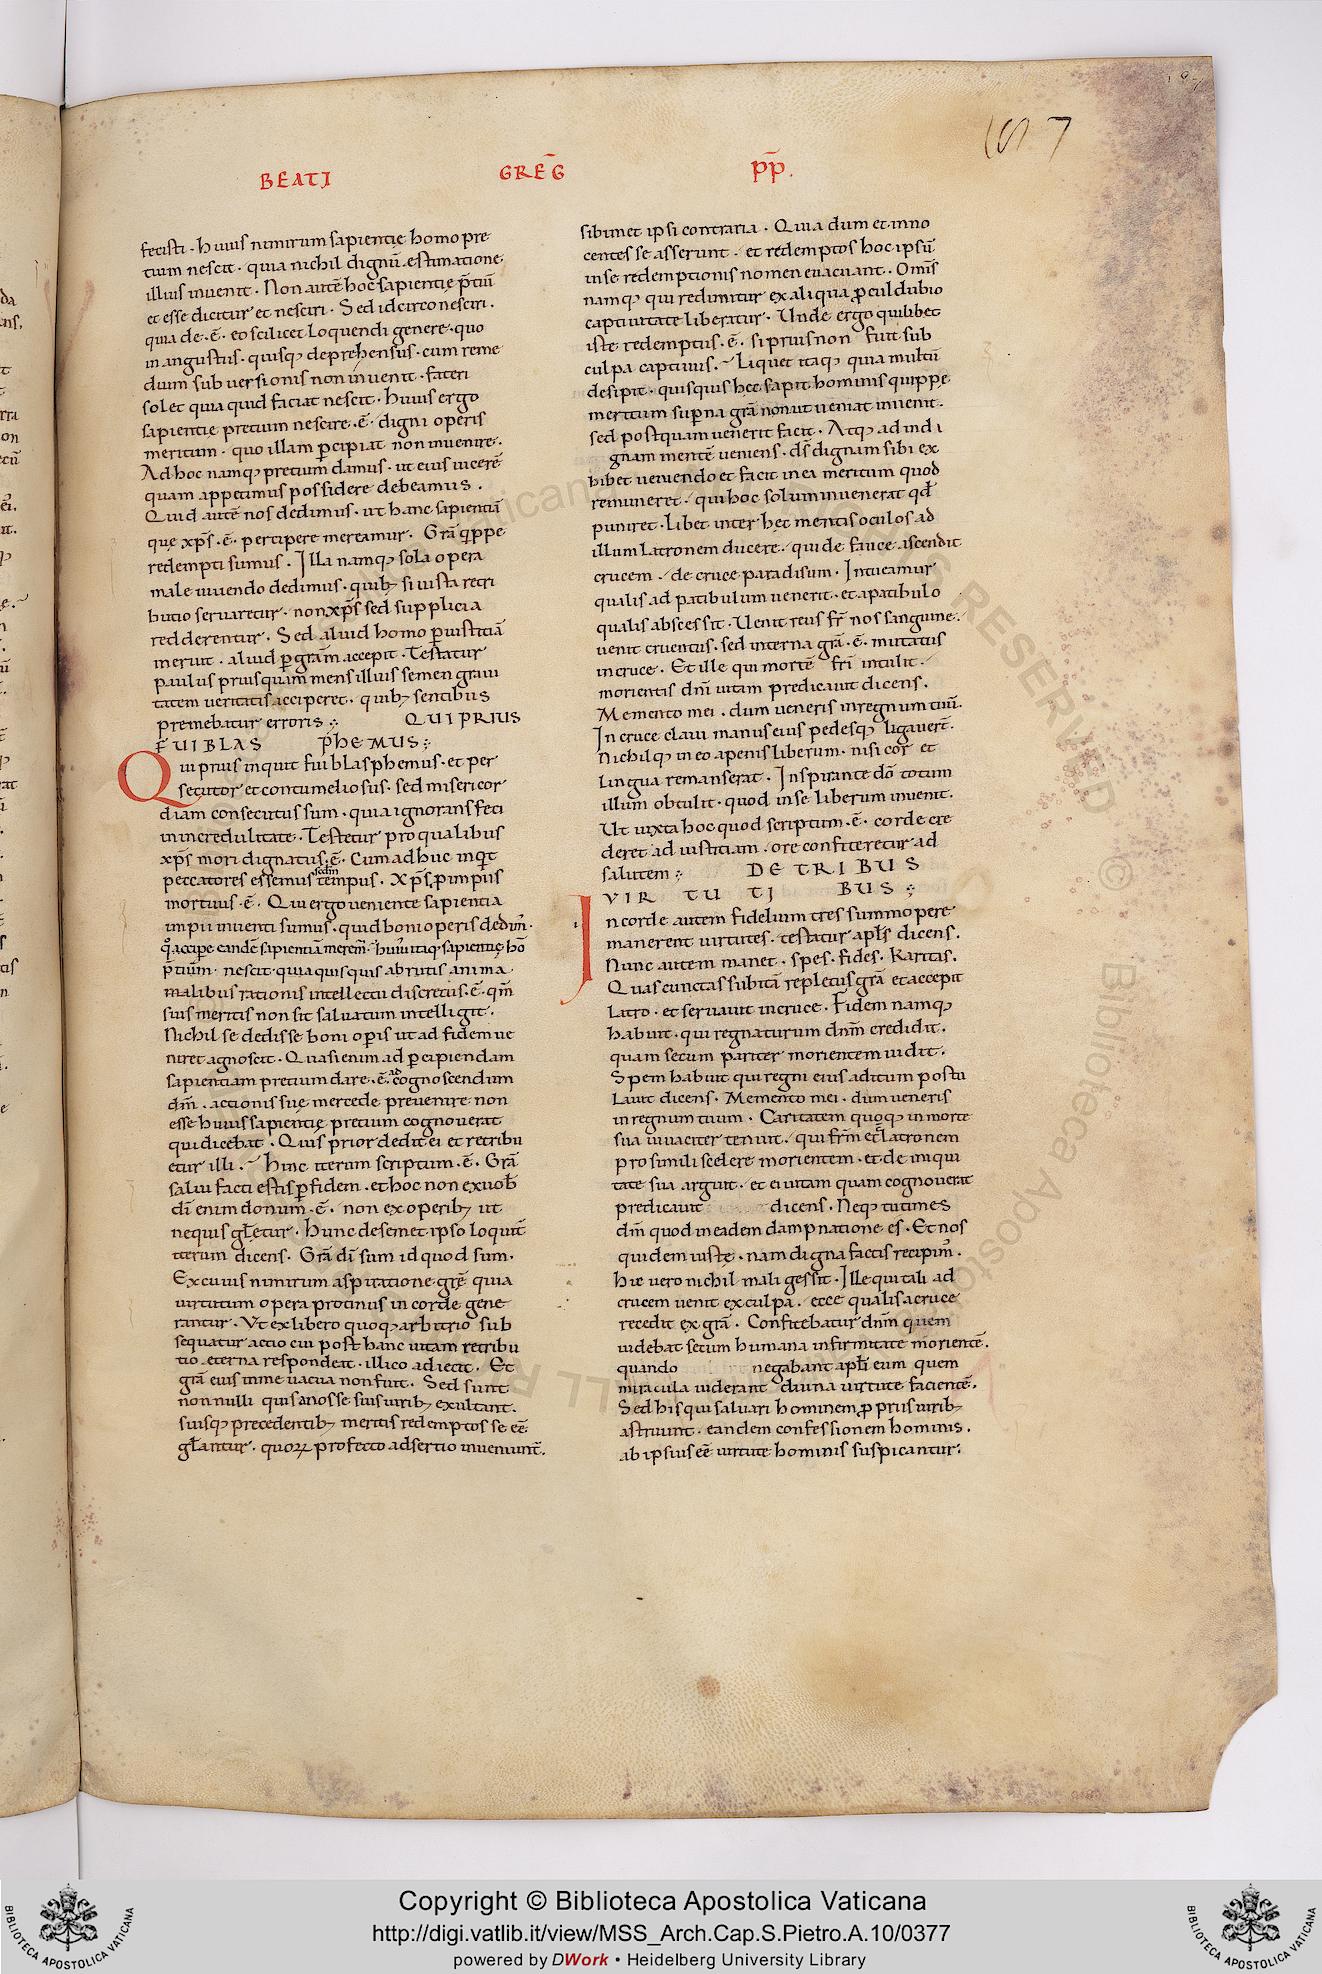 187
BEATI GREG̅ P̅P̅.
fecisti · huius nimirum sapientię homo pre
tium nescit · quia nichil dignū estimatione
illius inuenit · Non autē hoc sapientię p̄tiū
et esse dicitur et nesciri · Sed idcirco nesciri ·
quia de · ē · eo scilicet loquendi genere · quo
in angustus · quisq; deprehensus · cum reme
dium subuersionis non inuenit · fateri
solet quia quid faciat nescit · huius ergo
sapientię pretium nescire · ē · digni operis
meritum · quo illam ꝑcipiat non inuenire ·
Ad hoc namq; pretium damus · ut eius uicerē
quam appetimus possidere debeamus ·
Quid autē nos dedimus · ut hanc sapientiā
que xp̄s · ē · percipere mereamur · Grā q̇ppe
redempti sumus · Illa namq; sola opera
male uiuendo dedimus · quib; si iusta retri
butio seruaretur · non xp̄s sed supplicia
redderentur · Sed aliud homo ꝑ iustitiā
meruit · aliud ꝑ grām accepit · Testatur
paulus priusquam mens illius semen graui
tatem ueritatis acciperet · quib; sentibus
premebatur erroris · QUI PRIUS
FUI BLAS PHEMUS
Qui prius inquit fui blasphemus · et per
secutor et contumeliosus · sed misericor
diam consecutus sum · quia ignorans feci
in incredulitate · Testetur pro qualibus
xp̄s mori dignatus · ē · Cum adhuc inq̇t
peccatores essemus secdm tempus · Xp̄s ꝑ impiis
mortuus · ē · Qui ergo ueniente sapientia
impii inuenti sumus · quid boni operis dedim̄ ·
malibus rationis intellectu discretus · ē · qm̄
suis meritis non sit saluatum intelligit ·
Nichil se dedisse boni oꝑis ut ad fidem ue
niret agnoscit · Quasi enim ad ꝑcipiendam
sapientiam pretium dare · ē · ad cognoscendum
dm̄ · actionis suę mercede preuenire non
esse huius sapientię pretium cognouerat
qui dicebat · Quis prior dedit ei et retribu
etur illi · Hinc iterum scriptum · ē · Grā
salui facti estis ꝑ fidem · et hoc non ex uob̄
dī enim donum · ē · non ex operib; ut
nequis gl̄etur · Hunc de semet ipso loquit̄
iterum dicens · Grā dī sum id quod sum ·
Ex cuius nimirum aspiratione grē quia
uirtutum opera protinus in corde gene
rantur · Ut ex libero quoq; arbitrio sub
sequatur actio cui post hanc uitam retribu
tio eterna respondeat · illico adiecit · Et
grā eius in me uacua non fuit · Sed sunt
nonnulli qui sanos se suis uirib; exultant ·
suisq; precedentib; meritis redemptos se eē
gl̄antur · quoꝝ profecto adsertio inueniunt̄ ·
sibimet ipsi contraria · Quia dum et inno
centes se asserunt · et redemptos hoc ipsū
in se redemptionis nomen euacuant · Omīs
namq; qui redimitur ex aliqua ꝓculdubio
captiuitate liberatur · Unde ergo quilibet
iste redemptus · ē · si prius non fuit sub
culpa captiuus · Liquet itaq; quia multū
desipit · quisquis hęc sapit hominis quippe
meritum suꝑna grā non ut ueniat inuenit ·
sed postquam uenerit facit · Atq; ad indi
gnam mentē ueniens · ds̄ dignam sibi ex
hibet ueniendo et facit in ea meritum quod
remuneret · qui hoc solum inuenerat qd̄
puniret · Libet inter hęc mentis oculos ad
illum latronem ducere · qui de fauce ascendit
crucem · de cruce paradisum · Intueamur
qualis ad patibulum uenerit · et a patibulo
qualis abscessit · Uenit reus fr̄nos sanguine ·
uenit cruentus · sed interna grā · ē · mutatus
in cruce · Et ille qui mortē fr̄i intulit ·
morientis dnī uitam predicauit dicens ·
Memento mei · dum ueneris in regnum tuū ·
In cruce claui manus eius pedesq; ligauer̄t ·
Nichilq; in eo a penis liberum · nisi cor et
lingua remanserat · Inspirante dō totum
illum obtulit · quod in se liberum inuenit ·
Ut iuxta hoc quod scriptum · ē · corde cre
deret ad iustitiam · ore confiteretur ad
salutem · DE TRIBUS
VIR TU TI BUS
In corde autem fidelium tres summopere
manere uirtutes · testatur apl̄s dicens ·
Nunc autem manet · spes · fides · karitas ·
Quas cunctas subita repletus grā et accepit
latro · et seruauit in cruce · Fidem namq;
habuit · qui regnaturum dnm̄ credidit ·
quam secum pariter morientem uidit ·
Spem habuit qui regni eius aditum postu
lauit dicens · Memento mei · dum ueneris
in regnum tuum · Caritatem quoq; in morte
sua uiuaciter tenuit · qui fr̄m et latronem
pro simili scelere morientem · et de iniqui
tate sua arguit · et ei uitam quam cognouerat
predicauit dicens · Neq; tu times
dm̄ quod in eadem dampnatione es · Et nos
quidem iustę · nam digna factis recipim̄ ·
hic uero nichil mali gessit · Ille qui tali ad
crucem uenit ex culpa · ecce qualis a cruce
recedit ex grā · Confitebatur dnm̄ quem
uidebat secum humana infirmitate morientē ·
quando negabant apl̄i eum quem
miracula uiderant diuina uirtute facientē ·
Sed hi qui saluari hominem ꝓpriis uirib;
astruunt · eandem confessionem hominis ·
ab ipsius eē uirtute hominis suspicantur ·
Copyright © Biblioteca Apostolica Vaticana
http://digi.vatlib.it/view/MSS_Arch.Cap.S.Pietro.A.10/0377
powered by DWork • Heidelberg University Library
BIBLIOTECA APOSTOLICA VATICANA
BIBLIOTECA APOSTOLICA VATICANA